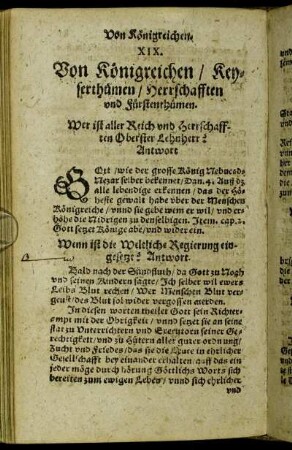 Von Königreichen.
XIX.
Von Königreichen / Key-
serthümen / Herrschafften
und Fürstenthümen.
Wer ist aller Reich und Herrschaff-
ten Oberster Lehnherr?
Antwort
GOtt / wie der grosse König Nebucad-
Nezar selber bekennet / Dan. 4. Auff dz
alle lebendige erkennen / das der Hö-
heste gewalt habe über der Menschen
Königreiche / vnnd sie gebe wem er wil / vnd er-
höhe die Nidrigen zu denselbigen. Item. cap. 2.
Gott setzet Könige abe / vnd wider ein.
Wenn ist die Weltliche Regierung ein-
gesetzt? Antwort.
Bald nach der Sündfluth / da Gott zu Noah
vnd seinen Kindern saget / Ich selber wil ewers
Leibs Blut rechen / Wer Menschen Blut ver-
geust / des Blut sol wider vergossen werden.
In diesen worten theilet Gott sein Richter-
ampt mit der Obrigkeit / vnnd setzet sie an seine
stat zu Unterrichtern vnd Executorn seiner Ge-
rechtigkeit / vnd zu Hütern aller guter ordnung /
Zucht vnd Friedes / das sie die Leute in ehrlicher
Gesellschafft bey einander erhalten / auff das ein
jeder möge durch hörung Göttlichs Worts sich
bereiten zum ewigen Leben / vnnd sich ehrlicher
vnd